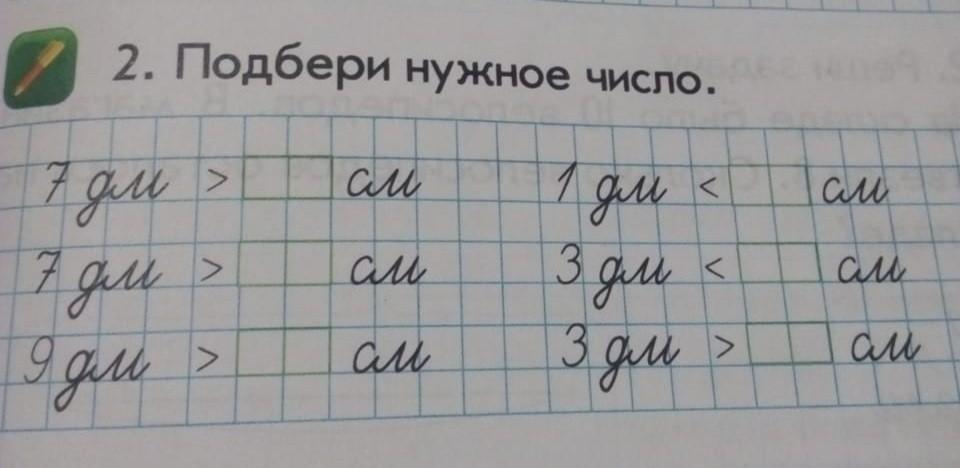 2. Подбери нужное число.
7 дм > см 1 дм < см
7 дм > см 3 дм < см
9 дм > см 3 дм > см